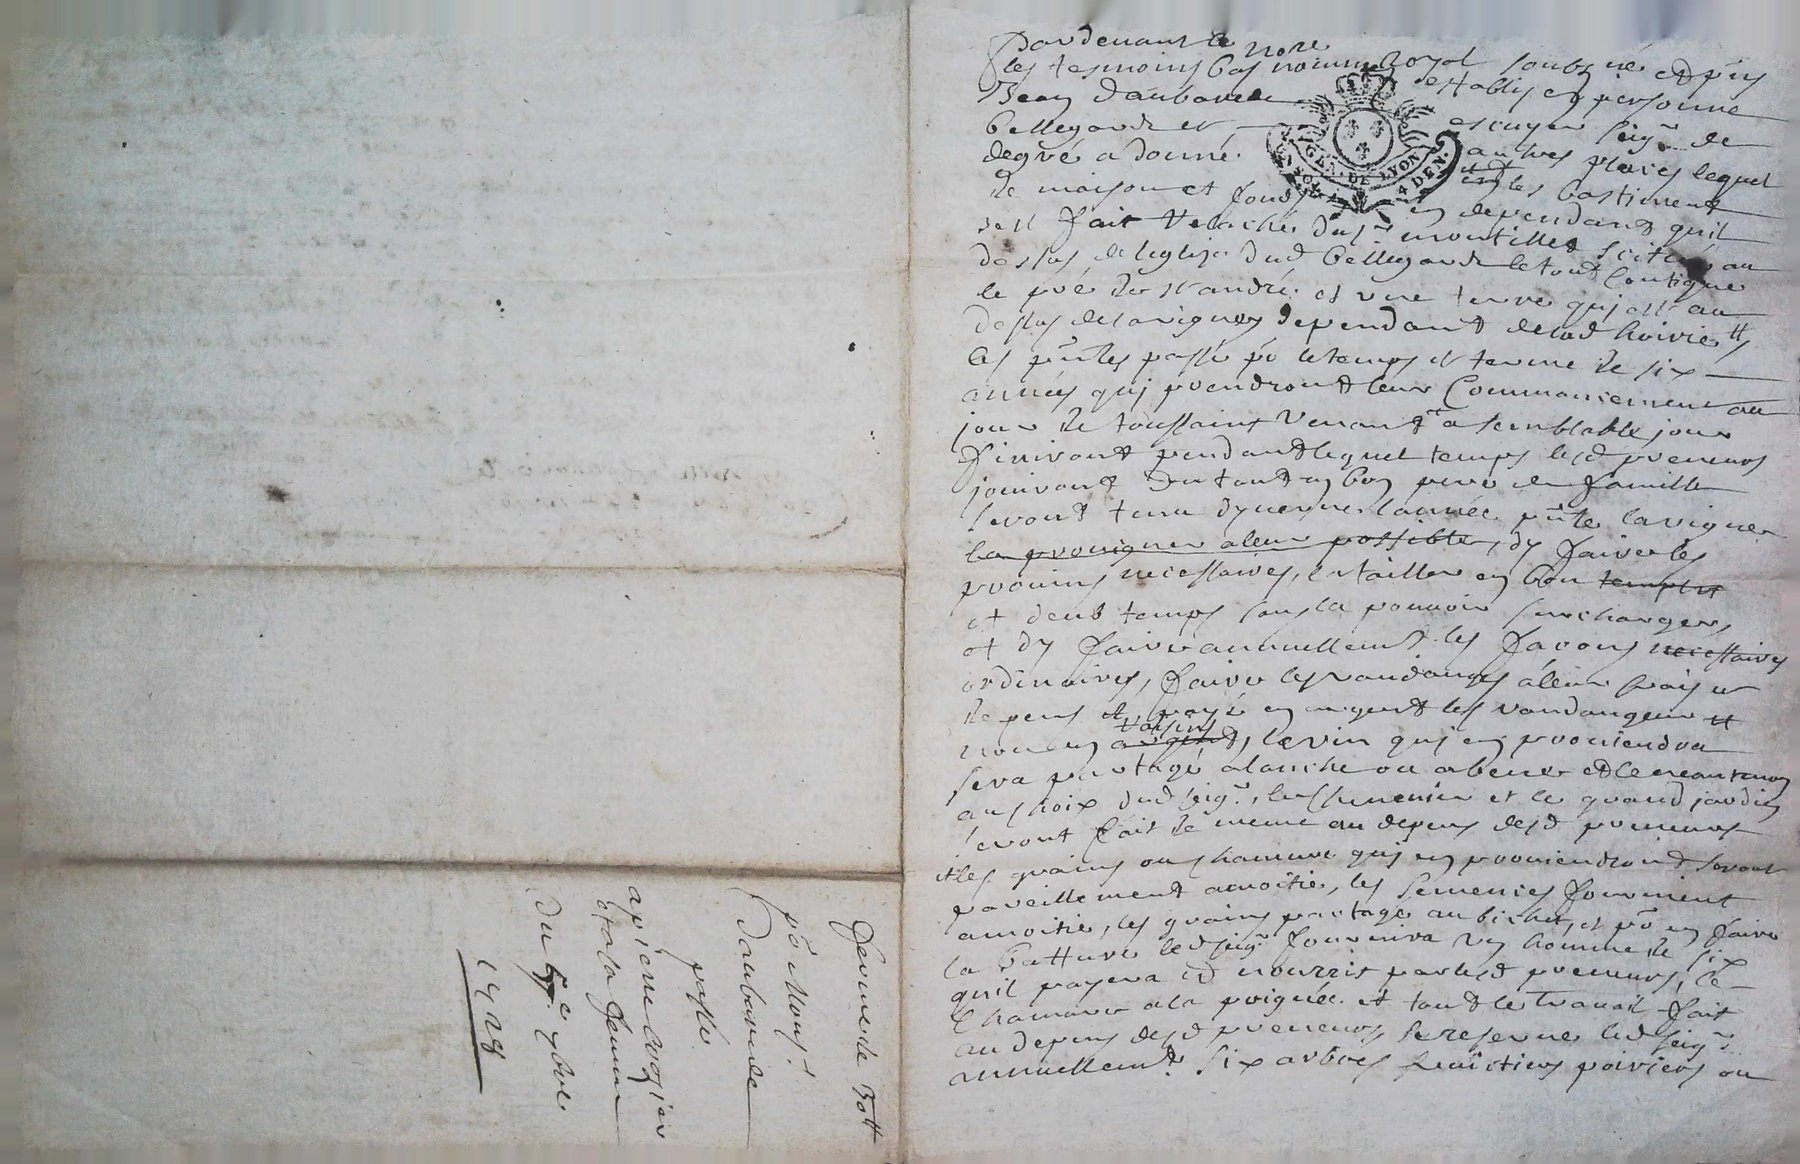 Pardevant le no.re Royal soubs.né et p.ns
les tesmoins bas nommes establis en personne
Jean Daubarede escuyer seig.r de
Bellegarde et autres places lequel
degré a donné les bastiment
de maison et fonds en dependant quil
sest fait relaché du s.r montillet scitués au
dessus de leglise dud bellegarde le tout contigue
le pré de st andré et une terre qui est au
dessus de la vigne dependant de lad hoirie
les p.ntes passé po.r le temps et terme de six
années qui prendront leur Commancement au
jour de toussaint venant a semblable jour
finivont pendant lequel temps lesd preneurs
jouiront du tout en bon pere de famille
seront tenu dy l'année p.nte la vigne
la provigner a leur possible, dy faire les
provins necessaires, la tailler en bon temps
et deub temps sans la pouvoir surcharger
et dy faire annuellem.t les facons necessaires
ordinaires, faire les vandanges á leur frais et
depens et payé en argent les vandangeurs et
non en raisins argent, le vin qui en proviendra
sera partagé a lanche ou a la benne
au choix dud seig.r, la cheneviere et le grand jardin
seront fait de meme au depens desd preneurs
et les grains ou chanvre qui en proviendront seront
pareillement a moitie, les semences fournient
a moitie, les grains partagé au bichet, et po.r en faire
la batture led seig.r fournira un homme de six
quil payera et nourris par lesd preneurs, le
Chanvre a la poignée et tout le travail fait
au depens desd preneurs, se reserve led seig.r
annuellem.t six arbres fruictiers poiriers ou
ferme de 70tt
po.r Mons.r
Daubarede
passé
a pierre
et a la femme
du 5.e 9bre
1728
GEN. DE LYON
4 DEN.